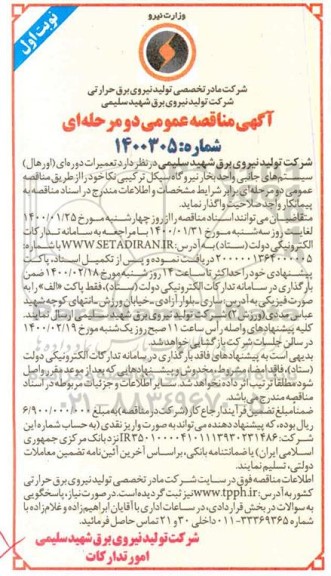 وزارت نیرو
نوبت اول
شرکت مادر تخصصی تولید نیروی برق حرارتی
شرکت تولید نیروی برق شهید سلیمی
آگهی مناقصه عمومی دو مرحله‌ای
شماره: ۱۴۰۰۳۰۵
شرکت تولید نیروی برق شهید سلیمی در نظر دارد تعمیرات دوره‌ای (اورهال)
سیستم‌های جانبی واحد بخار نیروگاه سیکل ترکیبی نکا خود را از طریق مناقصه
عمومی دو مرحله‌ای برابر شرایط مشخصات و اطلاعات مندرج در اسناد مناقصه به
پیمانکار واجد صلاحیت واگذار نماید.
متقاضیان می‌توانند اسناد مناقصه را از روز چهارشنبه مورخ ۱۴۰۰/۰۱/۲۵
لغایت روز سه‌شنبه مورخ ۱۴۰۰/۰۱/۳۱ با مراجعه به سامانه تدارکات
الکترونیکی دولت (ستاد) به آدرس: WWW.SETADIRAN.IR با شماره:
۲۰۰۰۰۰۱۳۶۴۰۰۰۰۰۵ دریافت نموده و پس از تکمیل اسناد، پاکت
پیشنهادی خود را حداکثر تا ساعت ۱۴ روز شنبه مورخ ۱۴۰۰/۰۲/۱۸ ضمن
بارگذاری در سامانه تدارکات الکترونیکی دولت (ستاد)، فقط پاکت «الف» را به
صورت فیزیکی به آدرس: ساری ـ بلوار آزادی ـ خیابان ورزش ـ انتهای کوچه شهید
عباس مجدی (ورزش ۲) ـ شرکت تولید نیروی برق شهید سلیمی ارسال نمایند.
کلیه پیشنهادهای واصله رأس ساعت ۱۱ صبح روز یک شنبه مورخ ۱۴۰۰/۰۲/۱۹
در سالن جلسات شرکت بازگشایی خواهد شد.
بدیهی است به پیشنهادهای فاقد بارگذاری در سامانه تدارکات الکترونیکی دولت
(ستاد)، فاقد امضا، مشروط، مخدوش و پیشنهادهایی که بعد از موعد مقرر واصل
شود مطلقاً ترتیب اثر داده نخواهد شد. سایر اطلاعات و جزئیات مربوطه در اسناد
مناقصه مندرج می‌باشد.
ضمناً مبلغ تضمین فرآیند ارجاع کار (شرکت در مناقصه) به مبلغ ۶/۹۰۰/۰۰۰/۰۰۰
ریال بوده، که پیشنهاد دهنده می‌تواند به صورت واریز نقدی (به حساب شماره این
شرکت: IR۳۵۰۱۰۰۰۰۴۱۰۱۱۱۳۹۳۰۲۳۱۴۸۶ نزد بانک مرکزی جمهوری
اسلامی ایران) یا ضمانتنامه بانکی، بر اساس آخرین آئین‌نامه تضمین معاملات
دولتی، تسلیم نمایند.
اطلاعات مناقصه فوق در سایت شرکت مادر تخصصی تولید نیروی برق حرارتی
کشور به آدرس: www.tpph.ir نیز ثبت گردیده است. در صورت نیاز، پاسخگویی
به سوالات در بخش قراردادی، در ساعات اداری با آقایان ابراهیم‌زاده و غلام‌زاده با
شماره ۳۳۳۶۹۳۶۵-۰۱۱ داخلی ۳۰ و ۲۱ تماس حاصل فرمائید.
شرکت تولید نیروی برق شهید سلیمی
امور تدارکات